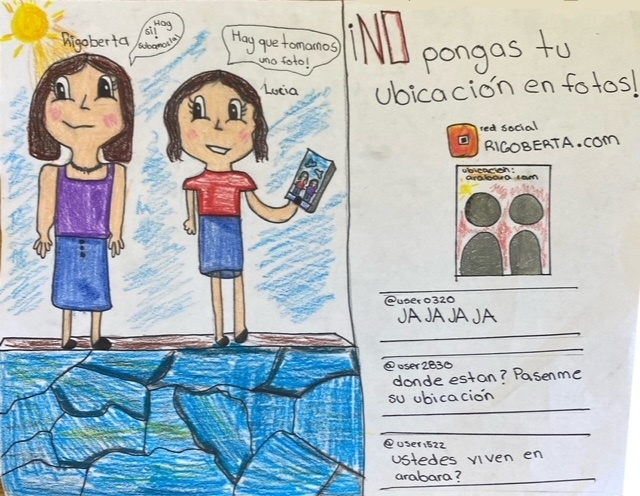 Rigoberta
Hay
si!
subamosla!
Hay que tomarnos
una foto!
Lucia
¡NO pongas tu
ubicación en fotos!
red social
RIGOBERTA.COM
ubicacion:
arabara.com
@user0320
JA JA JA JA
@user2830
donde estan? Pasenme
su ubicación
@user1522
ustedes viven en
arabara?